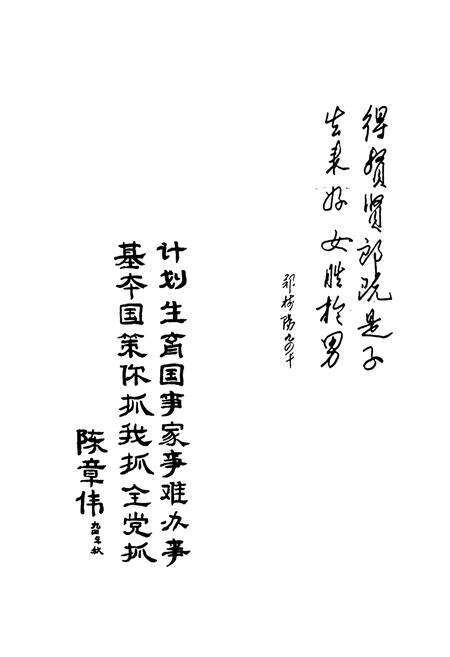 得贤贤郎既是子
生来好女胜于男
计划生育国事家事难办事
基本国策你抓我抓全党抓
陈章伟
九四年秋